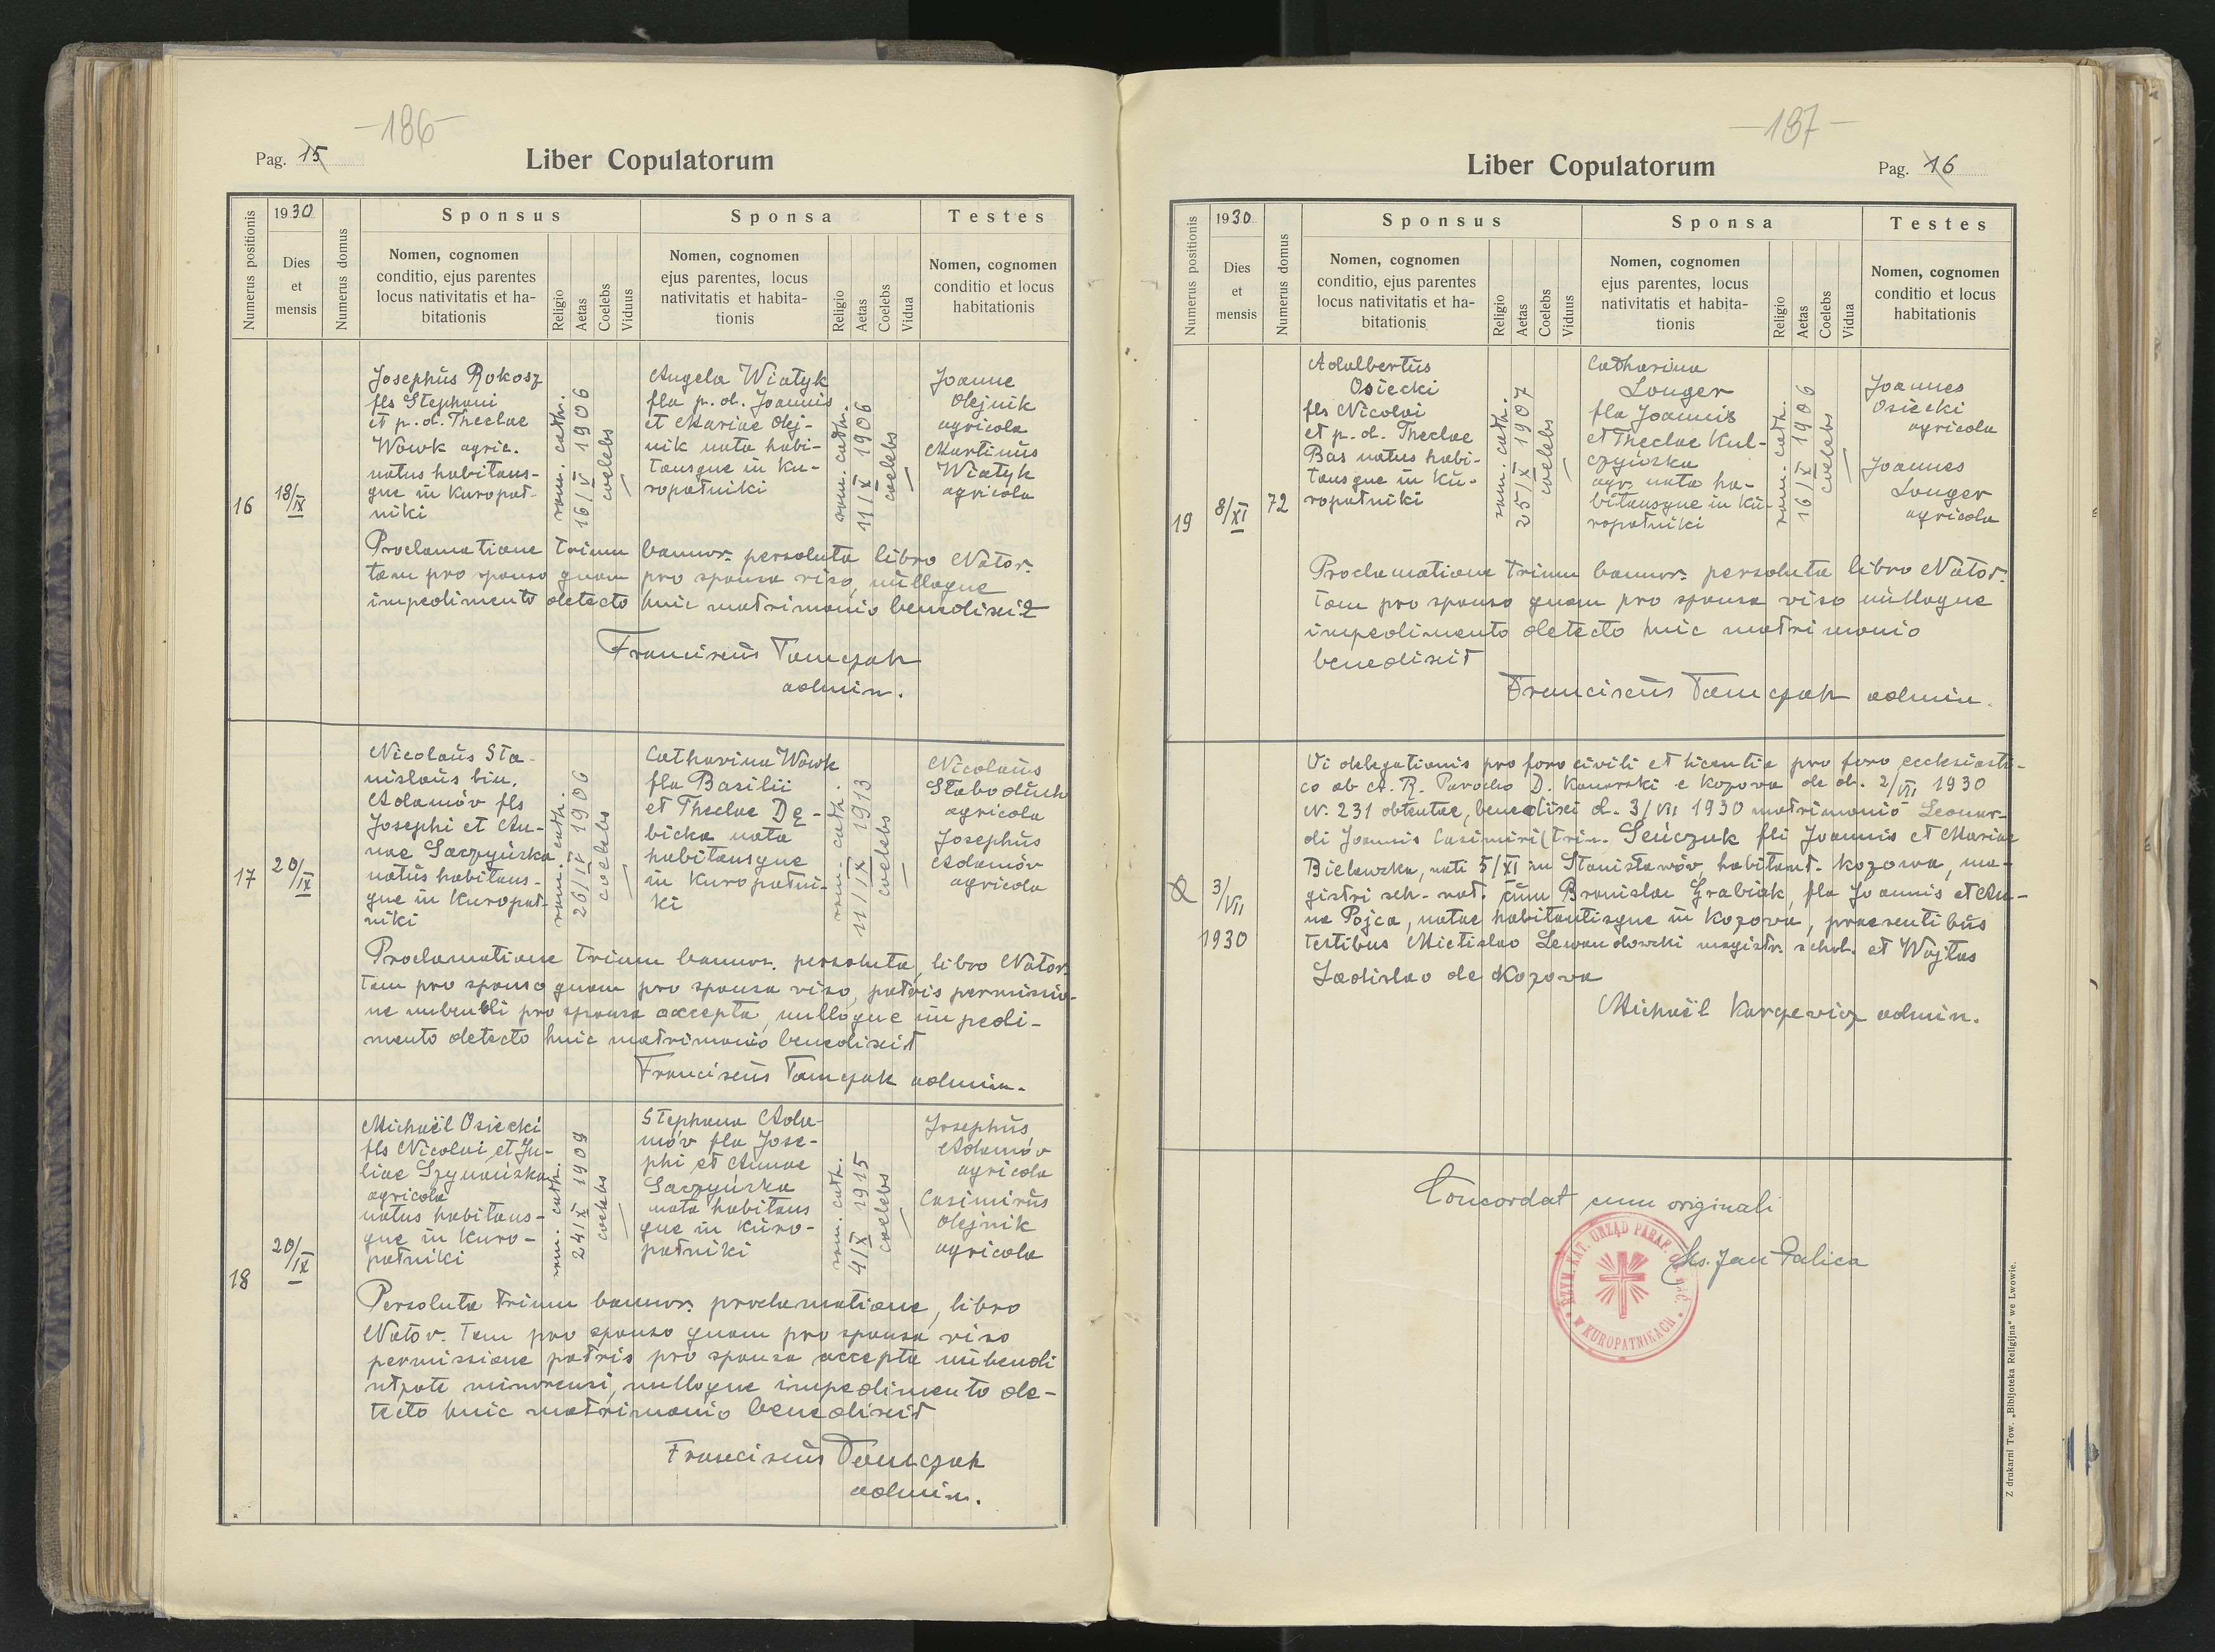 -186-
Pag. 15
Liber Copulatorum
Numerus positionis
1930
Dies
et
mensis
Numerus domus
Sponsus
Nomen, cognomen
conditio, ejus parentes
locus nativitatis et ha-
bitationis
Religio
Aetas
Coelebs
Viduus
Sponsa
Nomen, cognomen
ejus parentes, locus
nativitatis et habita-
tionis
Religio
Aetas
Coelebs
Vidua
Testes
Nomen, cognomen
conditio et locus
habitationis
16
18/IX
Josephus Rokosz
fls Stephani
et p. d. Theclae
Wowk agric.
natus habitans-
que in Kuropat-
niki
rom. cath.
16/V 1906
coelebs
Angela Wiatyk
fla p. d. Joannis
et Mariae Olej-
nik nata habi-
tansque in Ku-
ropatniki
rom. cath.
11/X 1906
coelebs
Joanne
Olejnik
agricola
Martinus
Wiatyk
agricola
Proclamatione trium bannor. persoluta libro Nator.
tam pro sponso quam pro sponsa viso, nulloque
impedimento detecto huic matrimonio benedixit
Franciscus Tomczak
admin.
17
20/IX
Nicolaus Sta-
nislaus bin.
Adamów fls
Josephi et An-
nae Saczyńska
natus habitans-
que in Kuropat-
niki
rom. cath.
26/IV 1906
coelebs
Catharina Wowk
fla Basilii
et Theclae Dę-
bicka nata
habitansque
in Kuropatni-
ki
rom. cath.
11/IX 1913
coelebs
Nicolaus
Słaboduch
agricola
Josephus
Adamów
agricola
Proclamatione trium bannor. persoluta, libro Nator.
tam pro sponso quam pro sponsa viso, patris permissio-
ne nubendi pro sponsa accepta, nulloque impedi-
mento detecto huic matrimonio benedixit
Franciscus Tomczak admin.
18
20/IX
Michaël Osiecki
fls Nicolai et Ju-
liae Szymańska
agricola
natus habitans-
que in Kuro-
patniki
rom. cath.
24/X 1909
coelebs
Stephana Ada-
mów fla Jose-
phi et Annae
Saczyńska
nata habitans
que in Kuro-
patniki
rom. cath.
4/X 1915
coelebs
Josephus
Adamów
agricola
Casimirus
Olejnik
agricola
Persoluta trium bannor. proclamatione, libro
Nator. tam pro sponso quam pro sponsa viso
permissione patris pro sponsa accepta nubendi
utpote minorensi, nulloque impedimento de-
tecto huic matrimonio benedixit
Franciscus Tomczak
admin.
-187-
Liber Copulatorum
Pag. 16
Numerus positionis
1930
Dies
et
mensis
Numerus domus
Sponsus
Nomen, cognomen
conditio, ejus parentes
locus nativitatis et ha-
bitationis
Religio
Aetas
Coelebs
Viduus
Sponsa
Nomen, cognomen
ejus parentes, locus
nativitatis et habita-
tionis
Religio
Aetas
Coelebs
Vidua
Testes
Nomen, cognomen
conditio et locus
habitationis
19
8/XI
72
Adalbertus
Osiecki
fls Nicolai
et p. d. Theclae
Bas natus habi-
tansque in Ku-
ropatniki
rom. cath.
25/IX 1907
coelebs
Catharina
Longer
fla Joannis
et Theclae Kul-
czyńska
agr. nata ha-
bitansque in Ku-
ropatniki
rom. cath.
16/X 1906
coelebs
Joannes
Osiecki
agricola
Joannes
Longer
agricola
Proclamatione trium bannor. persoluta libro Nator.
tam pro sponso quam pro sponsa viso nulloque
impedimento detecto huic matrimonio
benedixit
Franciscus Tomczak admin.
3/VII
1930
Vi delegationis pro foro civili et licentia pro foro ecclesiasti-
co ab A. R. Parocho D. Kanarski e Kozova de d. 2/VII 1930
N. 231 obtentae, benedixi d. 3/VII 1930 matrimonio Leonar-
di Joannis Casimiri (trin. Seńczuk fli Joannis et Mariae
Bielawska, nati 5/XI in Stanisławów, habitant. Kozowa, ma-
gistri sch. nat. cum Bronislaa Grabiak, fla Joannis et An-
na Pojca, natae habitantisque in Kozova, praesentibus
testibus Mietislao Lewandowski magistr. schol. et Wojtas
Ladislao de Kozova
Michaël Kargewicz admin.
Concordat cum originali
Ks. Jan Palica
RZYM. KAT. URZĄD PARAF. OB. ŁAC.
W KUROPATNIKACH
Z drukarni Tow. „Bibljoteka Religijna" we Lwowie.